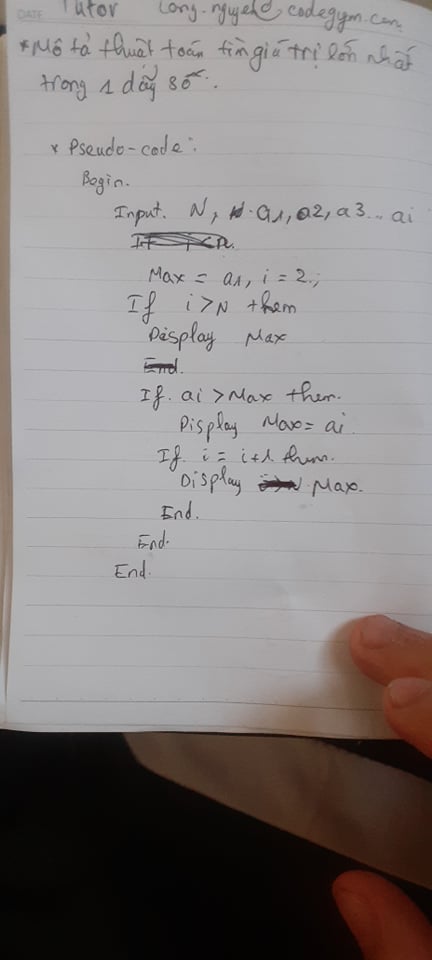 DATE Tutor Long.nguyen@codegym.com
* Mô tả thuật toán tìm giá trị lớn nhất
trong 1 dãy số.
* Pseudo-code:
Begin.
Input. N, a1, a2, a3... ai
Max = a1, i = 2;
If i>N them
Display Max
End.
If. ai > Max them.
Display Max = ai
If. i = i+1 them.
Display Max.
End.
End.
End.